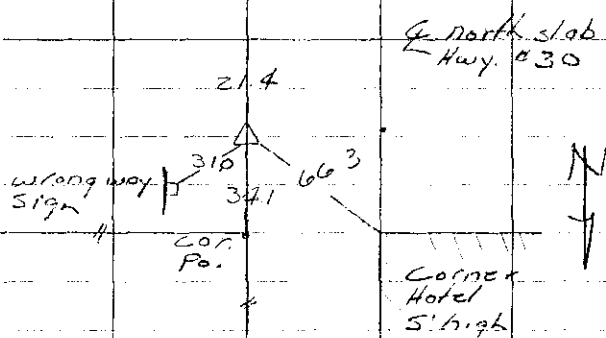 ℄ north slab
Hwy. #30
21.4
310
66 3
wrong way
Sign
37.1
N
Cor.
Po.
Corner
Hotel
5' high